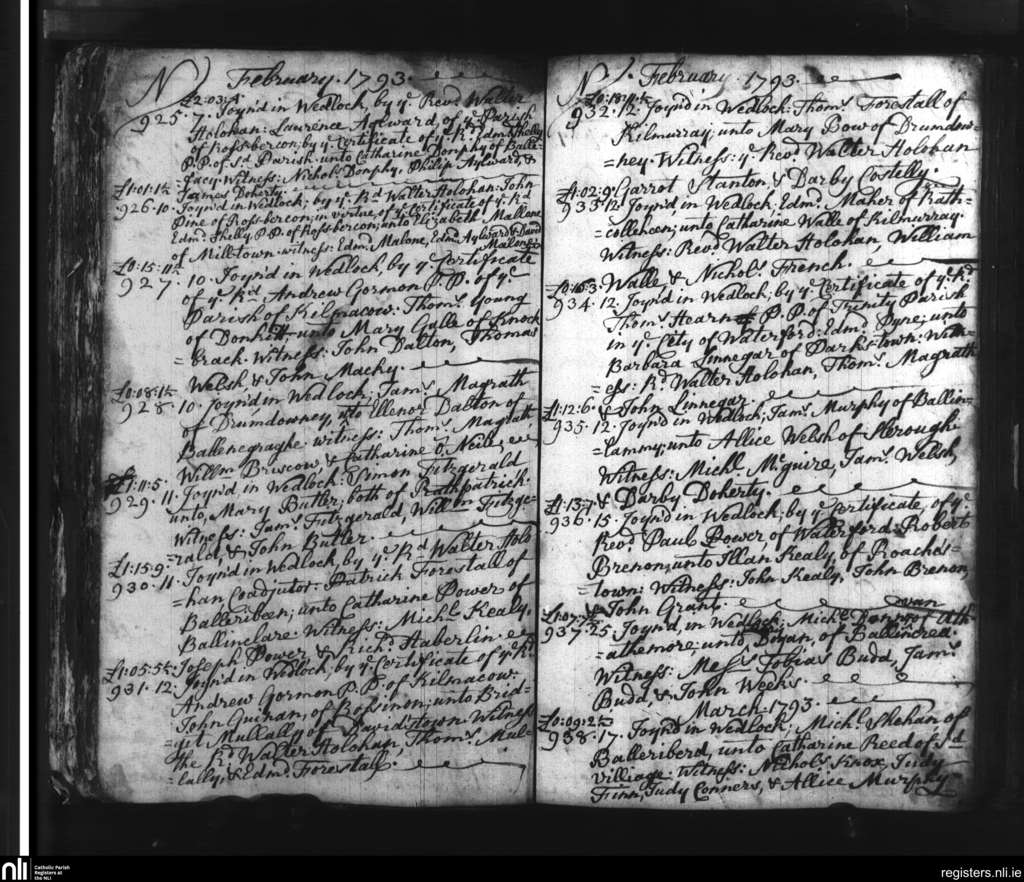 N) February. 1793.
£2:03:4
925. 7. Joyn'd in Wedlock, by ye. Revd. Walter
Holohan: Laurence Aylward, of ye. Parish
of Ross-bercon; by ye. Certificate of ye. Rd. Edmd. Shelly
P.P. of Sd. Parish. unto Catharine Donphy of Balle=
=facy. Witness: Nichols. Donphy, Philip Aylward, &
James Doherty.
£1:01:1½
926. 10. Joyn'd in Wedlock; by ye. Rd. Walter Holohan: John
Pine of Ross-bercon; in virtue, of ye. Certificate of ye. Rd
Edmd. Shelly, P.P. of Ross-bercon; unto Elizabeth Mallone
of Milltown. witness: Edmd. Malone, Edmd. Aylward & David
Malone
£0:15:11½
927. 10. Joyn'd in Wedlock, by ye. Certificate
of ye. Rd. Andrew Gormon P.P. of ye.
Parish of Kilmacow: Thoms. Young
of Donkitt: unto Mary Galle of Knock
=brack. Witness: John Dalton, Thomas
Welsh, & John Macky.
£0:08:1½
928. 10. Joyn'd in Wedlock, Jams. Magrath
of Drumdowney, unto Ellenor Dalton of
Ballenegraghe. witness: Thoms. Magrath,
Willm Briscow, & Catharine O, Neill,
£1:11:5.
929. 11. Joyn'd in Wedlock: Simon Fitzgerald
unto, Mary Butler; both of Rathpatrick.
Witness: Jams. Fitzgerald, Willm Fitzge=
=rald, & John Butler.
£1:15:9
930. 11. Joyn'd in Wedlock, by ye. Rd Walter Holo
=han Coadjutor: Patrick Forestall of
Balleribeen; unto Catharine Power of
Ballinclare. Witness: Michl. Kealy,
Joseph Power, & Richd. Haberlin.
£1:05:5½
931. 12. Joyn'd in Wedlock, by ye. Certificate of ye. Rd
Andrew Gormon P.P. of Kilmacow:
John Guinan, of Rossinon; unto Brid=
=get Mullally of David'stown. Witness
the Rd. Walter Holohan, Thoms. Mul=
=lally, & Edmd. Forestall.
N). February. 1793.
£0:18:11½
932. 12. Joyn'd in Wedlock: Thoms. Forestall of
Kilmurray; unto Mary Bow of Drumdow=
=ney. Witness: ye. Revd. Walter Holohan
Garrot Stanton, & Darby Costelly.
£1:02:9
933. 12. Joyn'd in Wedlock: Edmd. Maher of Rath=
=colleheen; unto Catharine Walle of Kilmurray.
Witness: Revd. Walter Holohan, William
Walle, & Nichols. French.
£0:16:3
934. 12. Joyn'd in Wedlock; by ye. Certificate of ye. Rd.
Thoms. Hearn P.P. of Trinity Parish
in ye. City of Waterford: Edmd. Pyne; unto
Barbara Linnegar of Parkstown: Witn=
=ess: Rd. Walter Holohan, Thoms. Magrath
& John Linnegar.
£1:12:6
935. 12. Joyn'd in Wedlock; Jams. Murphy of Ballin=
=lammy; unto Allice Welsh of Sleroughe
Witness: Michl. Mcguire, Jams. Welsh,
& Darby Doherty.
£1:13:7
936. 15. Joyn'd in Wedlock; by ye. Certificate, of ye.
Revd. Paul Power, of Waterford: Robert
Brenon, unto Illan Kealy, of Roache's=
=town: Witness: John Kealy, John Brenon,
& John Grant.
£1:07:7½
van
937. 25. Joyn'd, in Wedlock; Michl. of Ath=
=athemore, unto Boyan, of Ballincrea.
Witness: Messrs Tobias Budd, Jams.
Budd, & John Weeks.
March. 1793.
£0:09:2½
938. 17. Joyn'd in Wedlock; Michl. Shehan of
Balleriberd, unto Catharine Reed of Sd.
villiage. Witness: Nichols. Knox, Judy
Finn, Judy Conners, & Allice Murphy.
nli Catholic Parish
Registers at
the NLI
registers.nli.ie